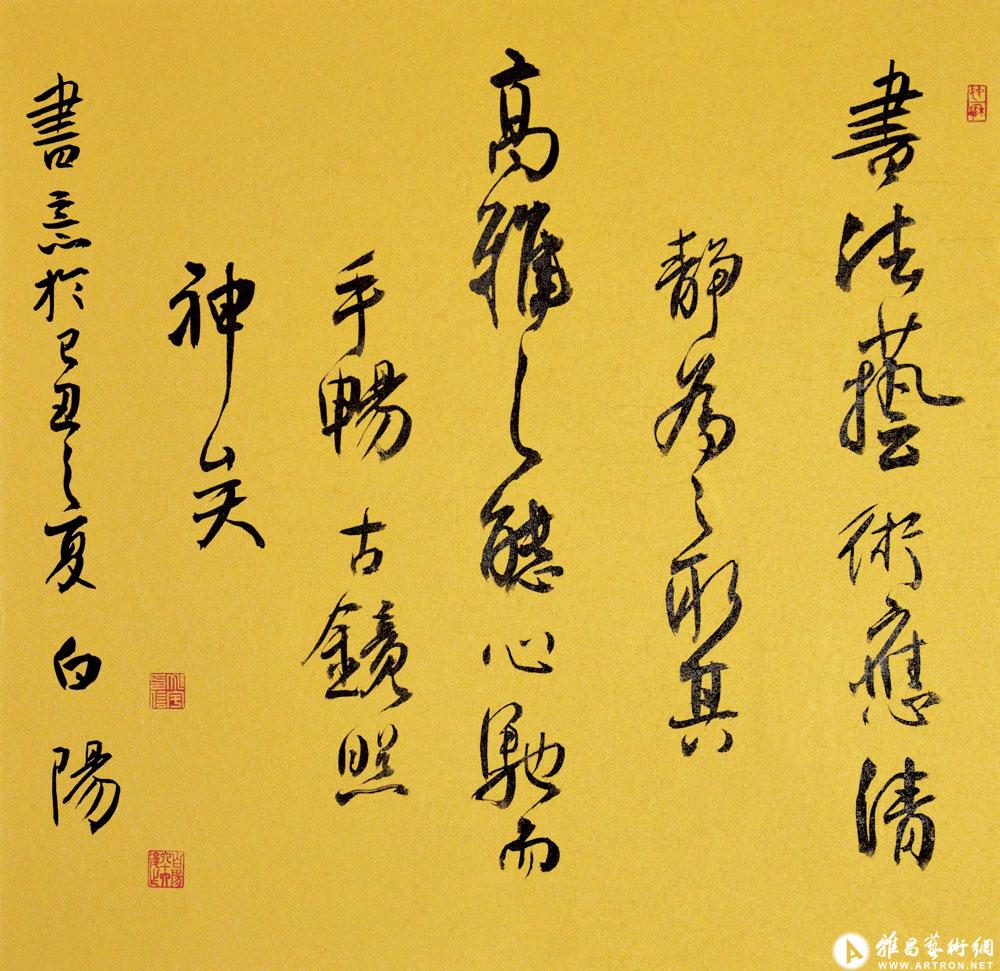 書法藝術應清
靜為之取其
高雅之態心馳而
手暢古鏡照
神矣
書意於己丑之夏 白陽
雅昌藝術網
WWW.ARTRON.NET